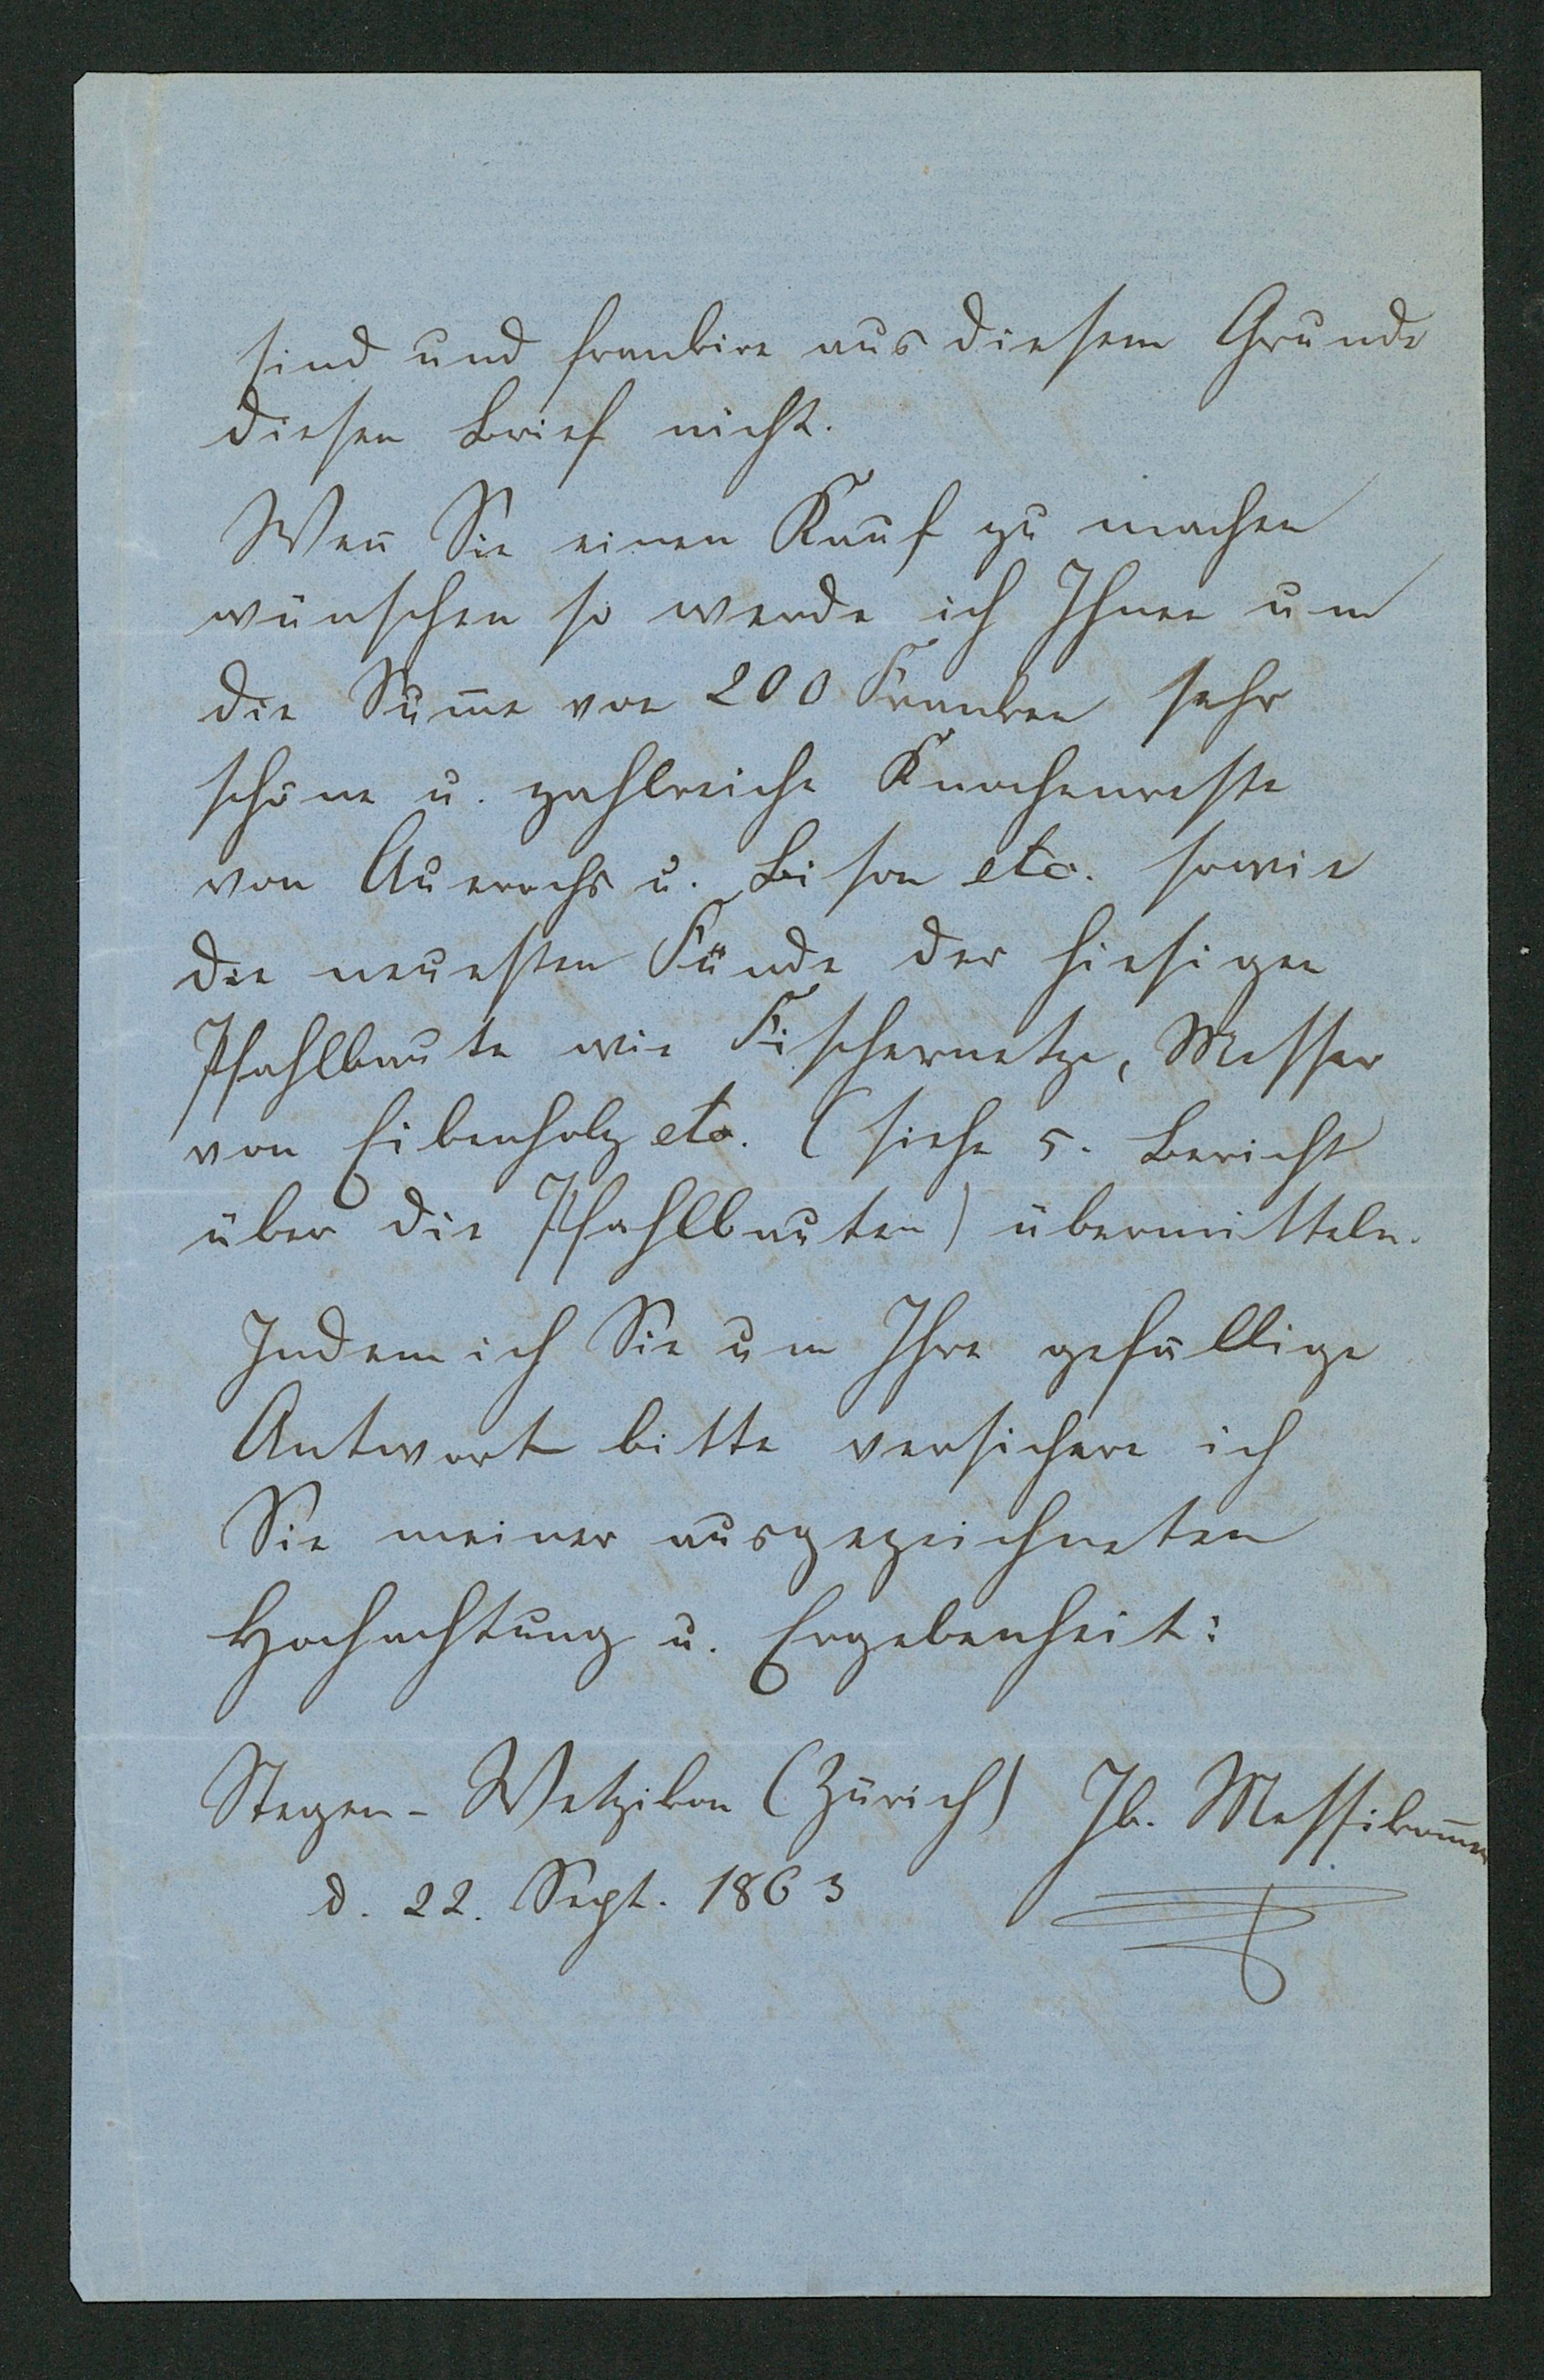 sind und frankire aus diesem Grunde
diesen Brief nicht.
Weñ Sie einen Kauf zu machen
wünschen so werde ich Ihnen um
die Sum̄e von 200 Franken sehr
schöne u. zahlreiche Knochenreste
von Auerochs u. Bison etc. sowie
die neuesten Fünde der hiesigen
Pfahlbaute wie Fischernetze, Messer
von Eibenholz etc. (siehe 5. Bericht
über die Pfahlbauten) übermitteln.
Indem ich Sie um Ihre gefällige
Antwort bitte versichere ich
Sie meiner ausgezeichneten
Hochachtung u. Ergebenheit:
Stegen-Wetzikon (Zürich) Jb. Messikom̄er
d. 22. Sept. 1863